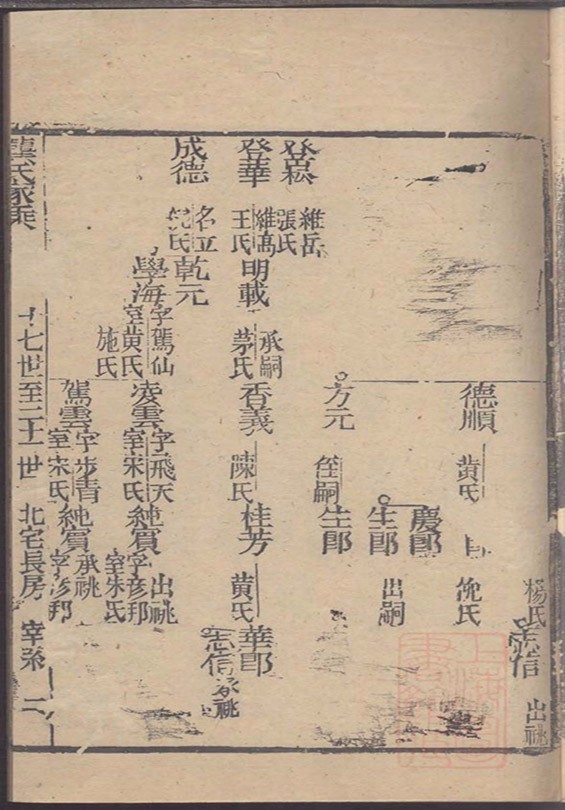 楊氏
志信
出祧
德順
黄氏
俛氏
慶郎
方元
侄嗣
生郎
生郎
出嗣
登崧
維岳
張氏
登華
維高
王氏
明載
承嗣
茅氏
香義
陳氏
桂芳
黄氏
華郎
志信
承祧
成德
名立
倪氏
乾元
學海
字駕仙
室黄氏
施氏
凌雲
字飛天
室宋氏
純賓
出祧
字彦邦
室朱氏
駕雲
字步青
室宋氏
純賓
承祧
字彦邦
龔氏家乘
十七世至二十一世
北宅長房
宰系
二